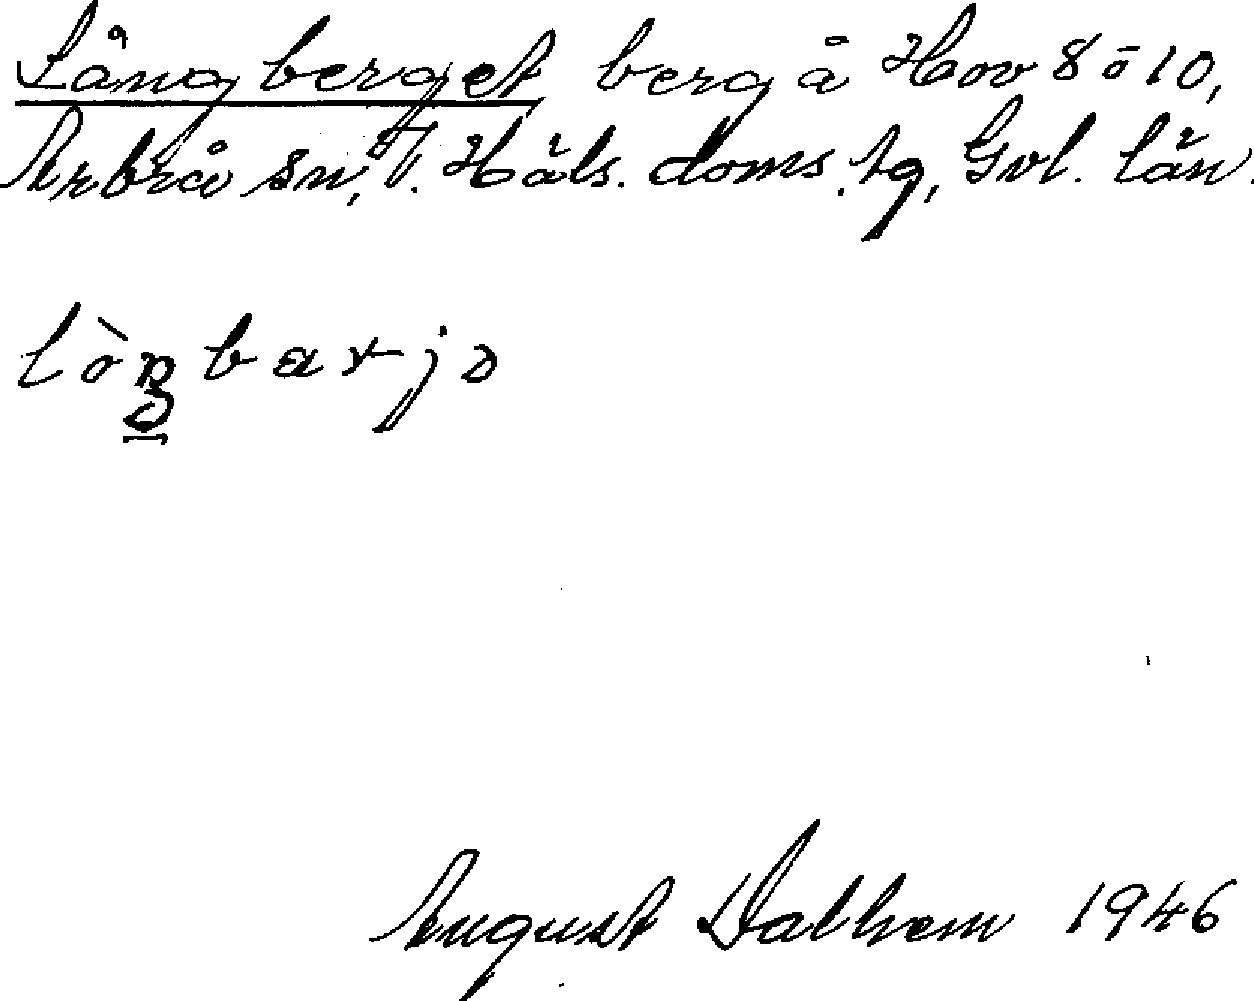 Långberget berg å Hov 8 ō 10,
Arbrå sn, V. Häls. doms. tg, Gvl. län.
lòŋbarjə
August Dalhem 1946